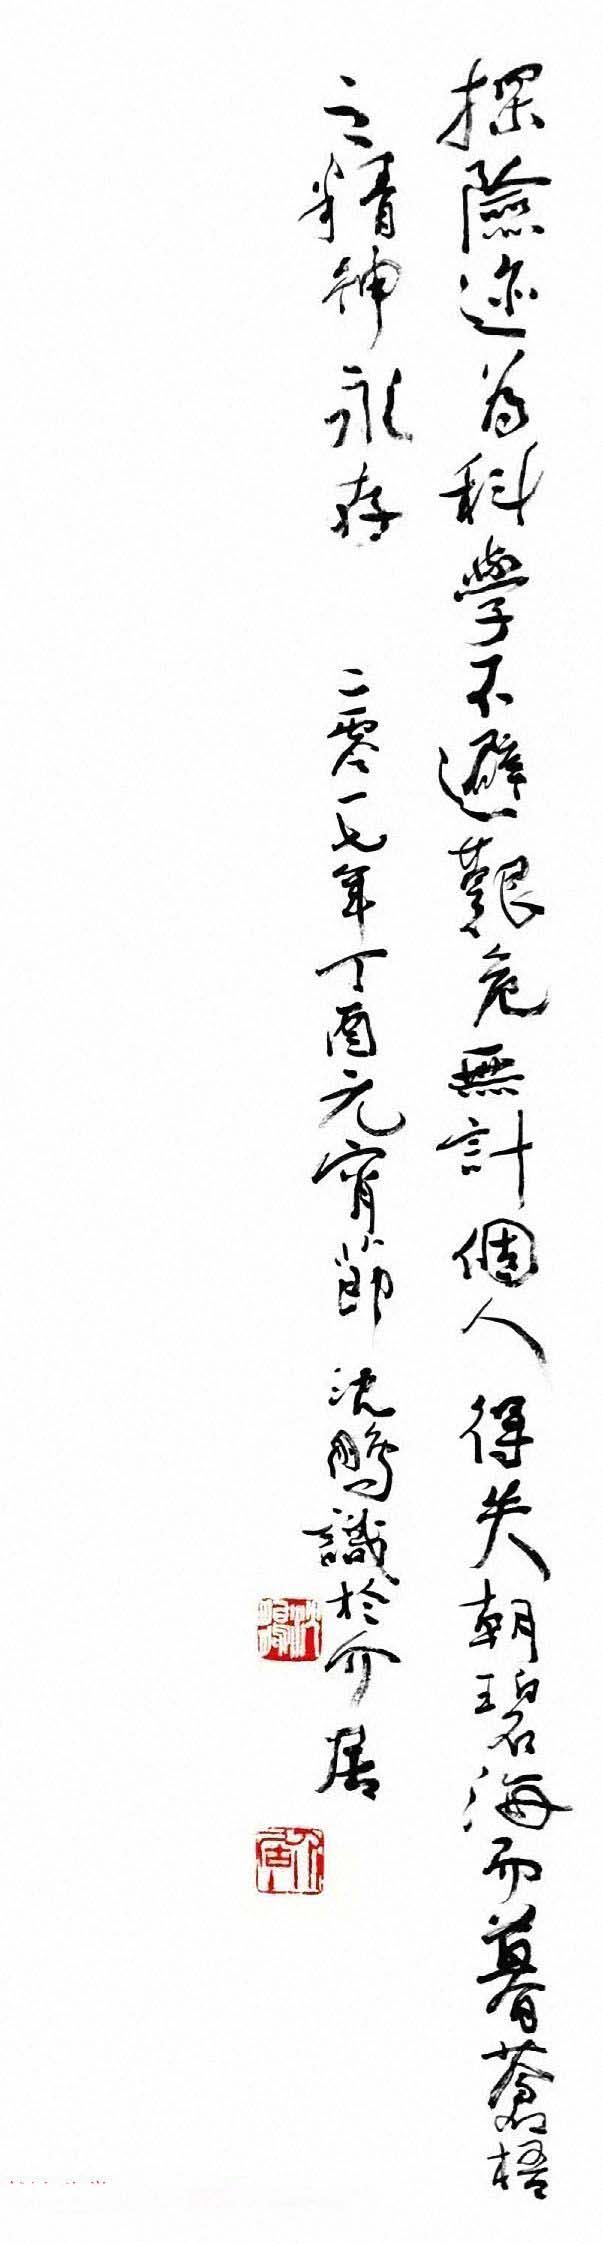 探險迹爲科學不避艱危無計個人得失朝碧海而暮蒼梧
之精神永存 二零一七年丁酉元宵節 沈鵬識於介居
沈鵬
介居